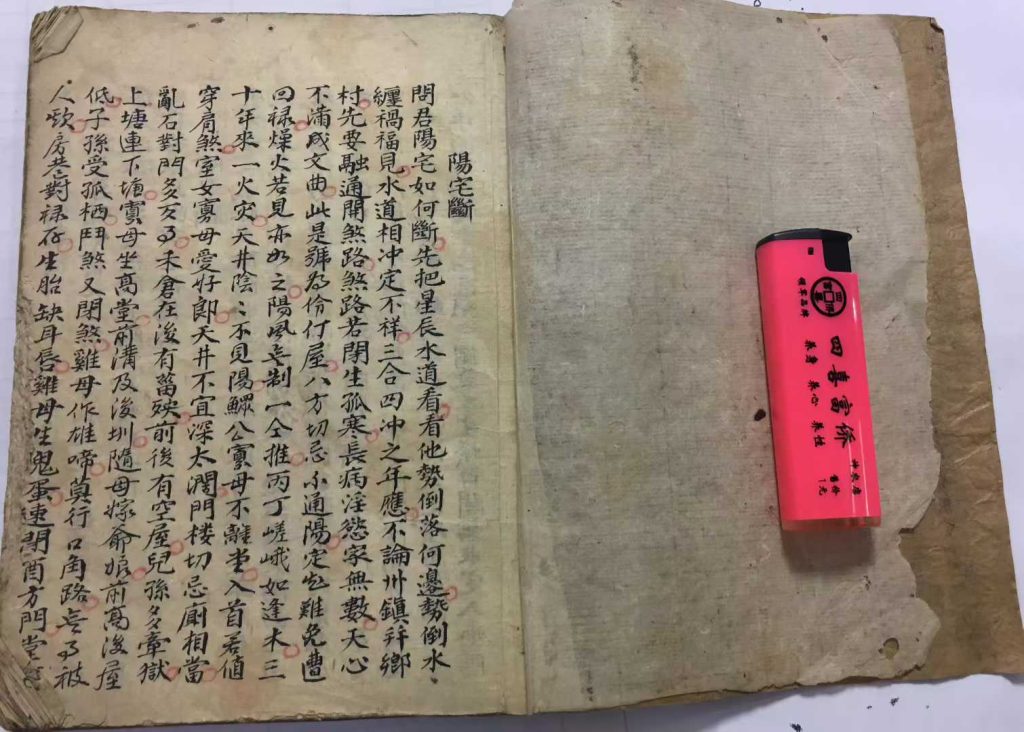 陽宅斷
問君陽宅如何斷先把星辰水道看看他勢倒落何邊勢倒水
纏禍福見水道相冲定不祥三合四冲之年應不論州鎮并鄉
村先要融通開煞路煞路若閉生孤寒長病淫慾家無數天心
不滿成文曲此是號為伶仃屋八方切忌不通陽定是難免曹
回禄燥火若見亦如之陽風無制一仝推丙丁嵯峨如逢木三
十年來一火灾天井陰〻不見陽鰥公寡母不離堂入首若値
穿肩煞室女寡母愛好郎天井不宜深太濶門楼切忌廁相當
亂石對門多亥禾倉在後有菑殃前後有空屋兒孫多牽獄
上塘連下塘寡母坐高堂前溝及後圳隨母嫁爺娘前高後屋
低子孫受孤栖鬥煞又閉煞雞母作雄啼莫行口角路無被
人歐房巷對禄存生胎缺耳唇雞母生鬼蛋速閉酉方門堂
四喜富侨
領军品牌
养身 养心 养性
神农居
售价
1元